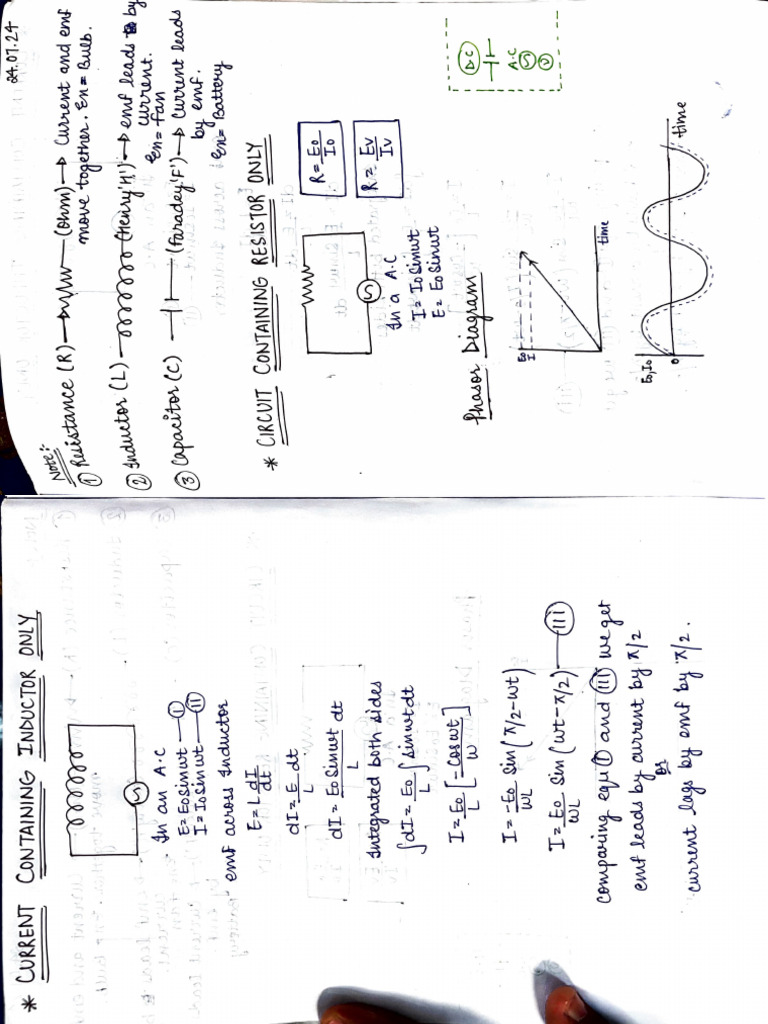 24.07.24
Note:-
① Resistance (R) → (Ohm) → Current and emf
move together. En = Bulb.
② Inductor (L) (Henry 'H') → emf leads by
current.
En = Fan
③ Capacitor (C) (Faraday 'F') → Current leads
by emf.
En = Battery
* CIRCUIT CONTAINING RESISTOR ONLY
R = E₀/I₀
R = Ev/Iv
In a A.C
I = I₀ sinωt
E = E₀ sinωt
D.C
A.C
Phasor Diagram
E₀
I
time
E₀, I₀
0
time
* CURRENT CONTAINING INDUCTOR ONLY
In an A.C
E = E₀ sinωt — Ⓘ
I = I₀ sinωt — Ⓘⓘ
emf across Inductor
E = L dI/dt
dI = E/L dt
dI = E₀ sinωt/L dt
Integrated both sides
∫dI = E₀/L ∫sinωt dt
I = E₀/L [-cosωt/ω]
I = -E₀/ωL sin(π/2-ωt)
I = E₀/ωL sin(ωt-π/2) — III
comparing equ I and III we get
emf leads by current by π/2
or
current lags by emf by π/2.